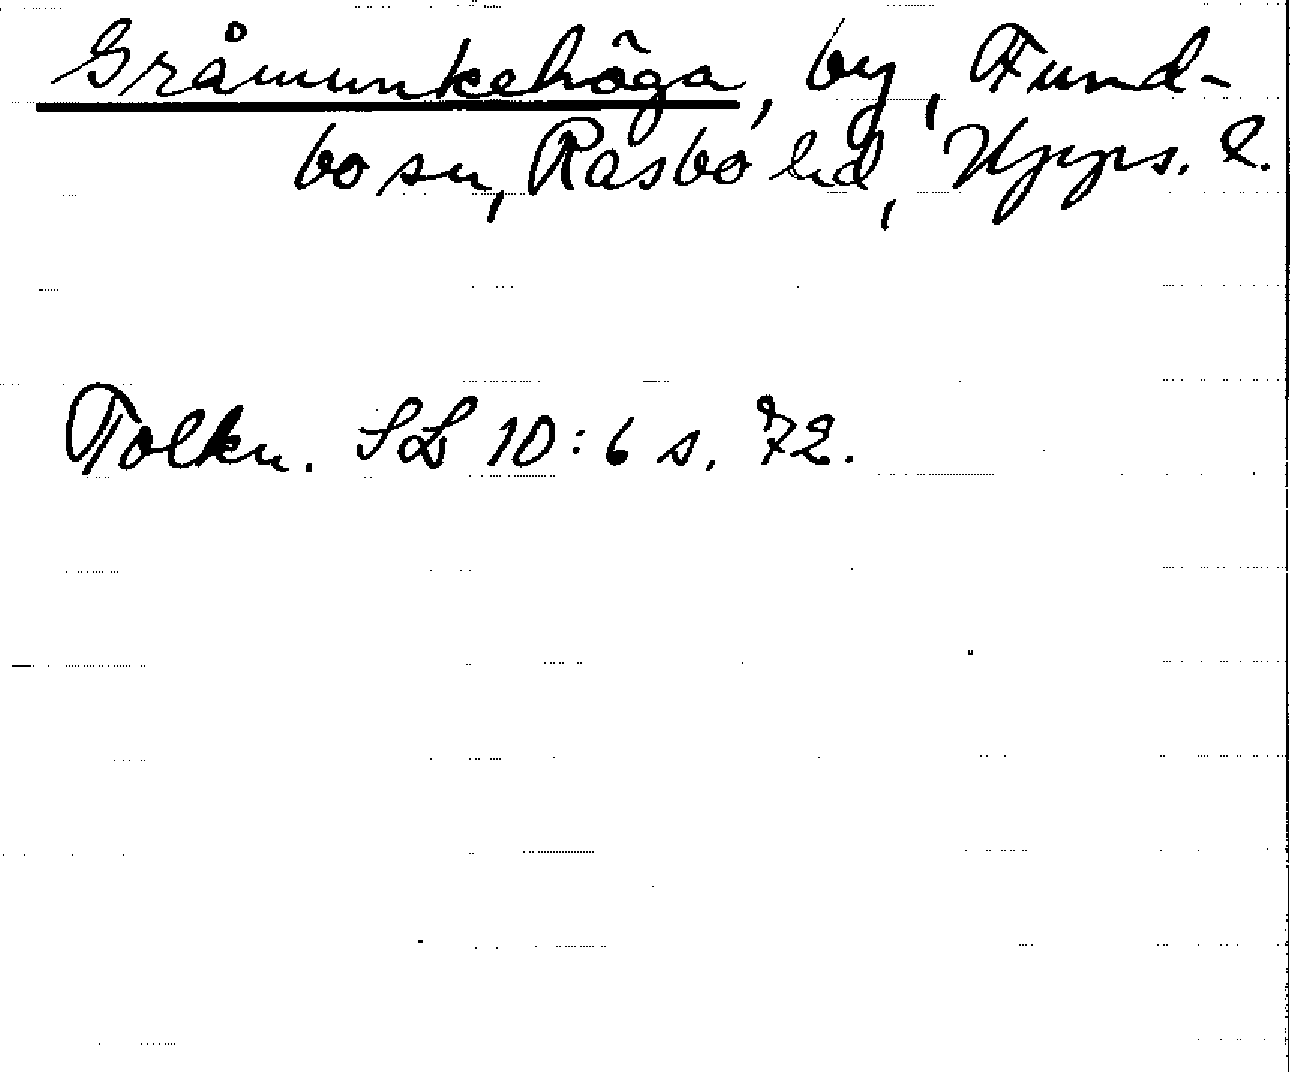 Gråmunkehöga, by, Fund-
bo sn, Rasbo hd, Upps. l.
Tolkn. SL 10:6 s. 72.